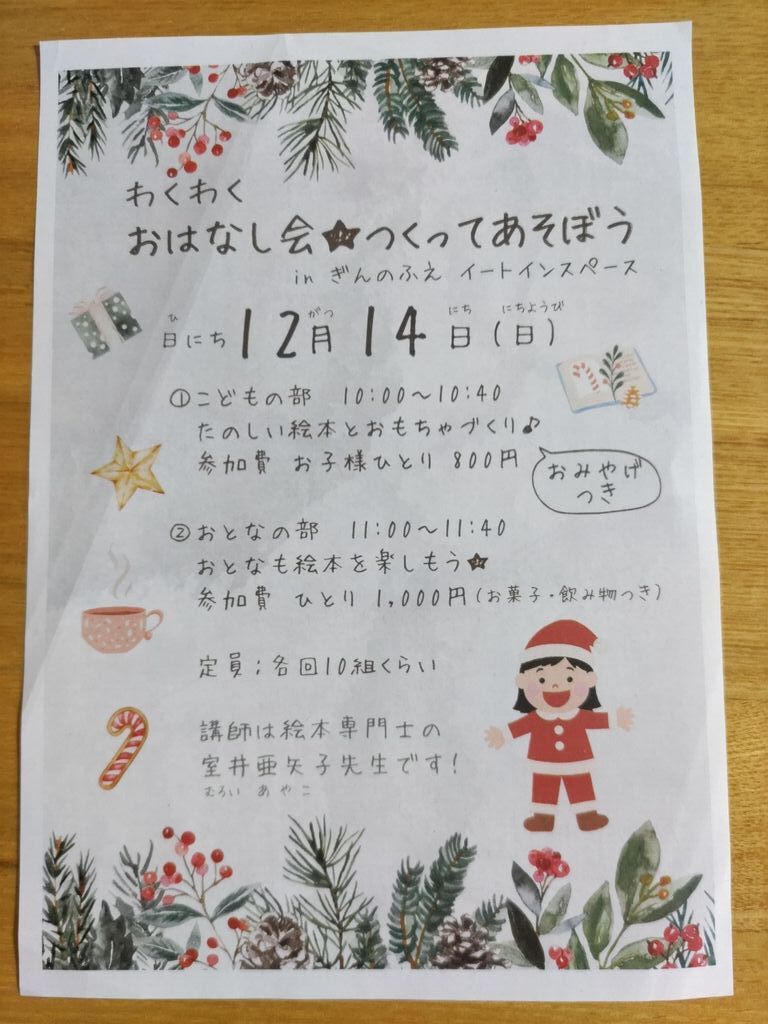 わくわく
おはなし会★つくってあそぼう
in ぎんのふえ イートインスペース
ひ がつ にち にちようび
日にち 12月 14日(日)
①こどもの部 10:00〜10:40
たのしい絵本とおもちゃづくり♪
参加費 お子様ひとり 800円
おみやげ
つき
②おとなの部 11:00〜11:40
おとなも絵本を楽しもう★
参加費 ひとり 1,000円(お菓子・飲み物つき)
定員;各回10組くらい
講師は絵本専門士の
室井亜矢子先生です!
むろい あやこ